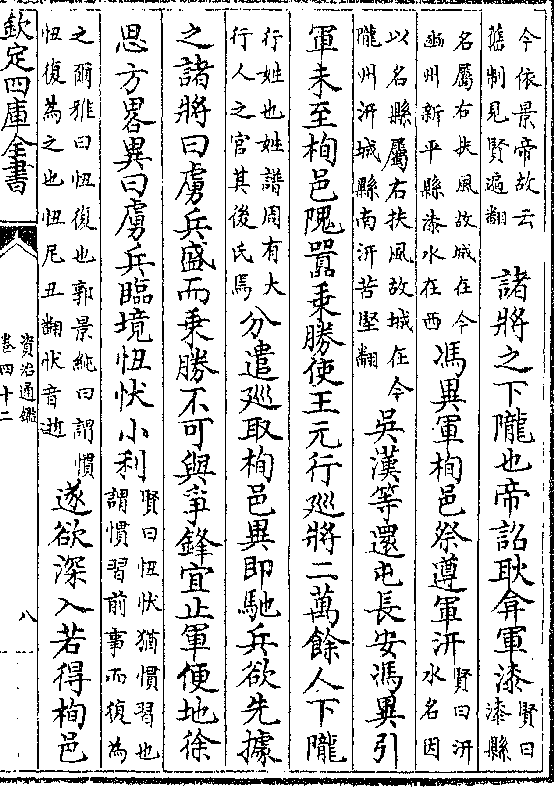 今依景帝故云
舊制見賢遍翻
諸將之下隴也帝詔耿弇軍漆
賢曰
漆縣
名屬右扶風故城在今
豳州新平縣漆水在西
馮異軍栒邑祭遵軍汧
賢曰汧
水名因
以名縣屬右扶風故城在今
隴州汧城縣南汧苦堅翻
吳漢等還屯長安馮異引
軍未至栒邑隗囂乘勝使王元行廵將二萬餘人下隴
行姓也姓譜周有大
行人之官其後氏焉
分遣廵取栒邑異即馳兵欲先據
之諸將曰虜兵盛而乘勝不可與爭鋒宜止軍便地徐
思方畧異曰虜兵臨境忸忕小利
賢曰忸忕猶慣習也
謂慣習前事而復為
之爾雅曰忸復也郭景純曰謂慣
忸復為之也忸尼丑翻忕音逝
遂欲深入若得栒邑
欽定四庫全書
資治通鑑
卷四十二
八